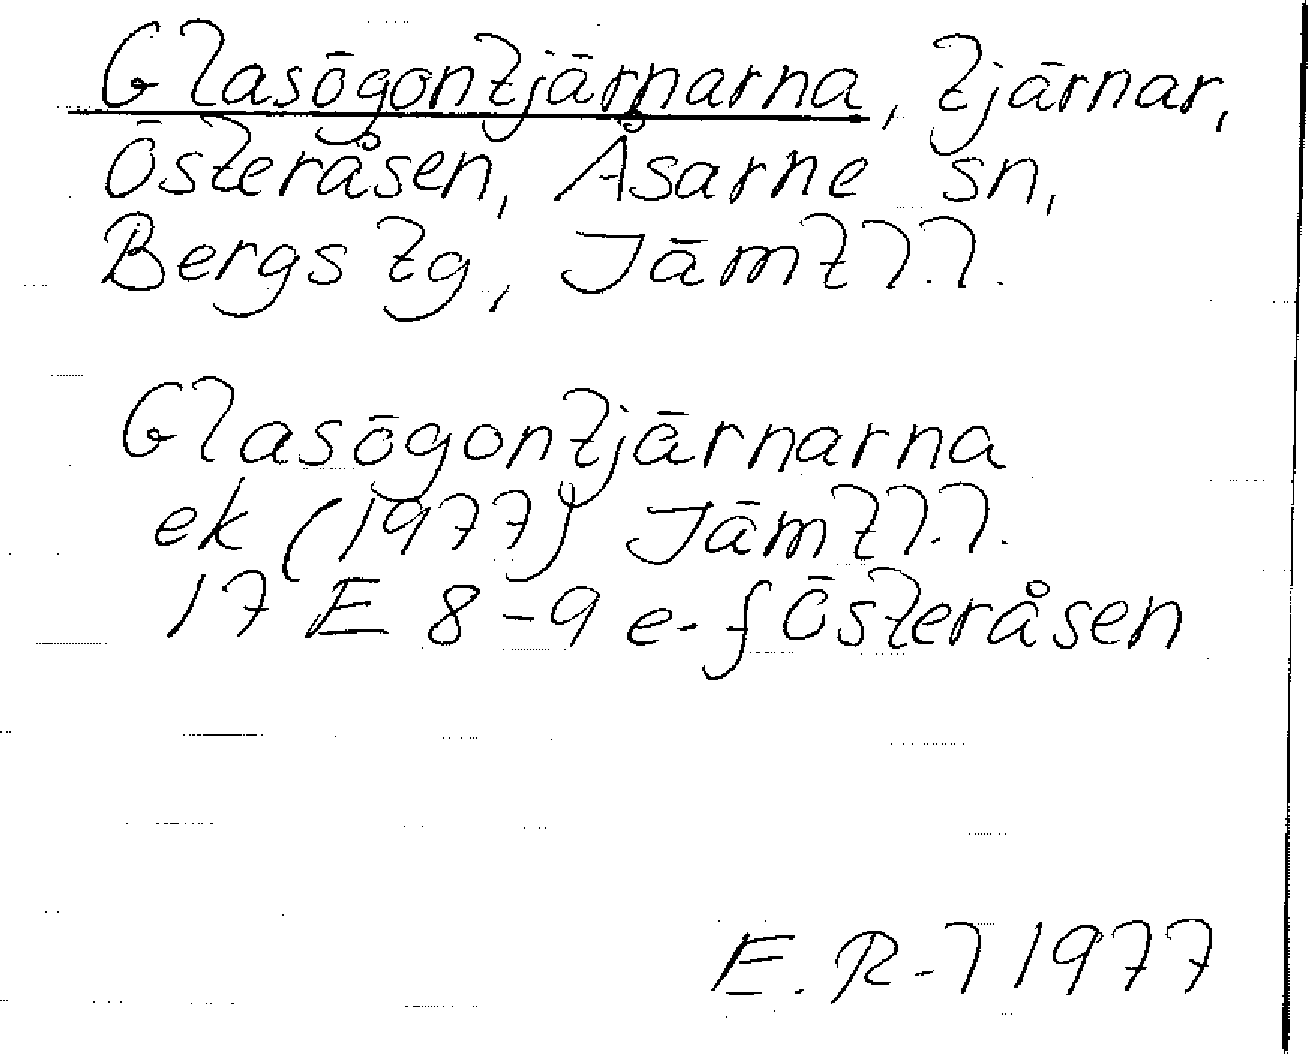 Glasögontjärnarna, tjärnar,
Österåsen, Åsarne sn,
Bergs tg, Jämtl.l.
Glasögontjärnarna
ek (1977) Jämtl.l.
17 E 8-9 e-f Österåsen
E. R-l 1977